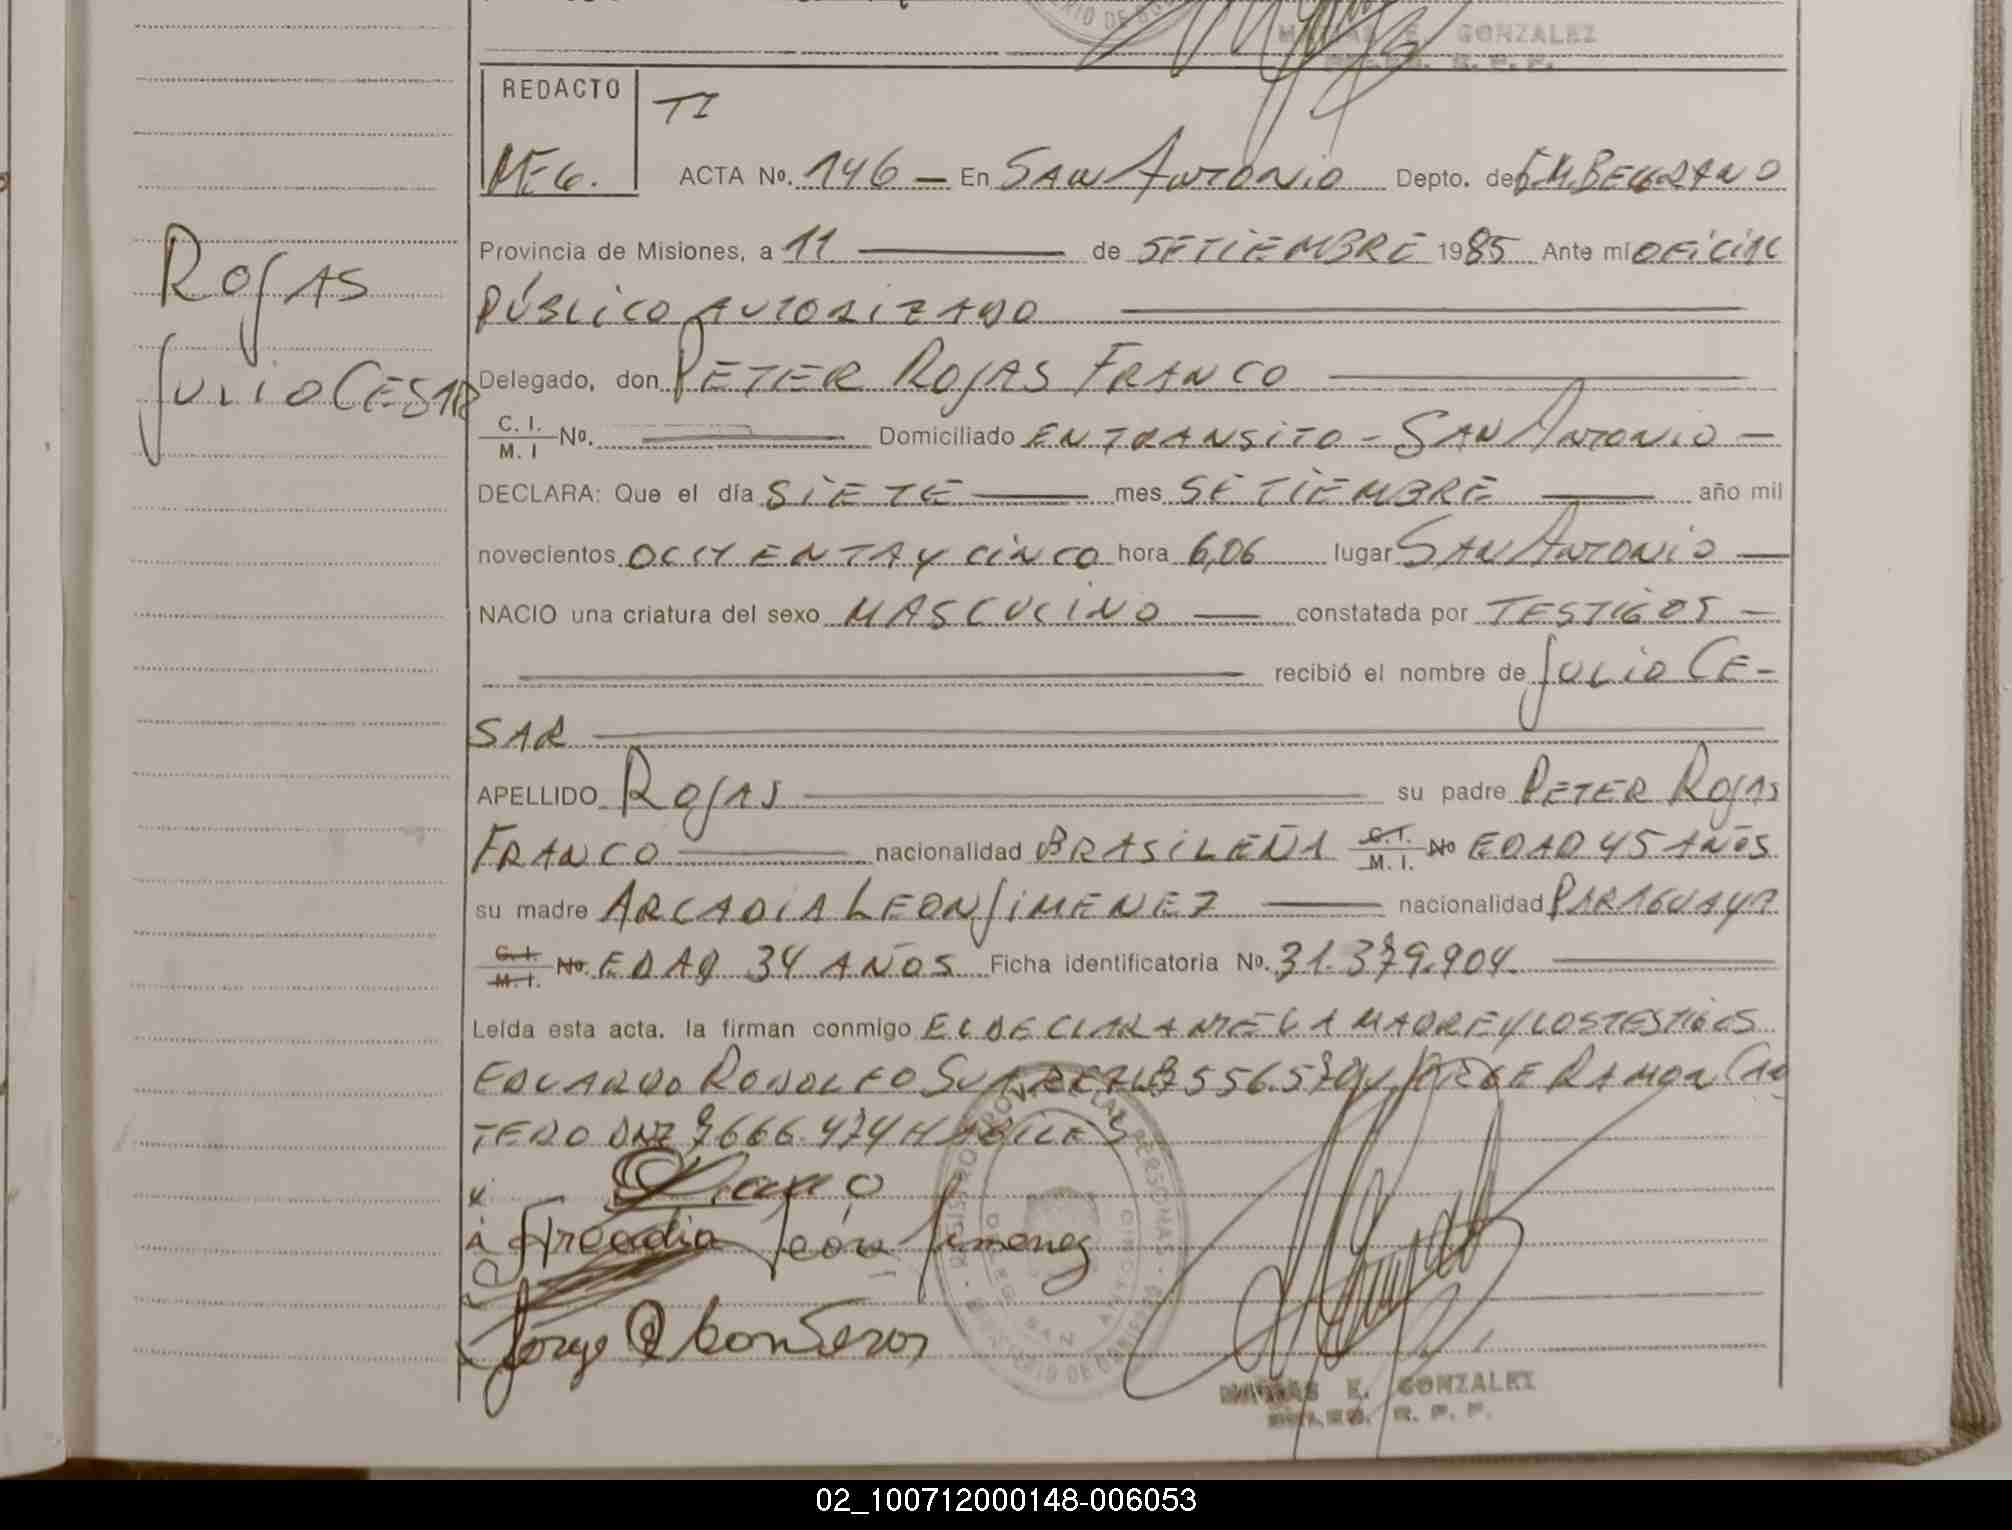 GONZALEZ
REDACTO
TI
M E G.
ACTA Nº. 146 — En SAN ANTONIO Depto. de G.M. BELGRANO
Provincia de Misiones, a 11 — de SETIEMBRE 1985 Ante mi OFICIAL
PÚBLICO AUTORIZADO
ROJAS
JULIO CESAR
Delegado, don PETER ROJAS FRANCO
C. I. / M. I Nº. — Domiciliado EN TRANSITO - SAN ANTONIO —
DECLARA: Que el día SIETE — mes SETIEMBRE — año mil
novecientos OCHENTA Y CINCO hora 6,06 lugar SAN ANTONIO —
NACIO una criatura del sexo MASCULINO — constatada por TESTIGOS —
— recibió el nombre de JULIO CE-
SAR
APELLIDO ROJAS — su padre PETER ROJAS
FRANCO — nacionalidad BRASILEÑA C. I. / M. I. Nº EDAD 45 AÑOS
su madre ARCADIA LEON JIMENEZ — nacionalidad PARAGUAYA
C. I. / M. I. Nº. EDAD 34 AÑOS Ficha identificatoria Nº. 31.379.904.
Leída esta acta, la firman conmigo EL DECLARANTE LA MADRE Y LOS TESTIGOS
EDUARDO RODOLFO SUAREZ 556.570 Y JORGE RAMON
TERO DNI 7666.474 HABILES
Franco
Arcadia León Jimenez
Jorge
REGISTRO PROVINCIAL DE LAS PERSONAS
MATIAS E. GONZALEZ
R. P. P.
02_100712000148-006053